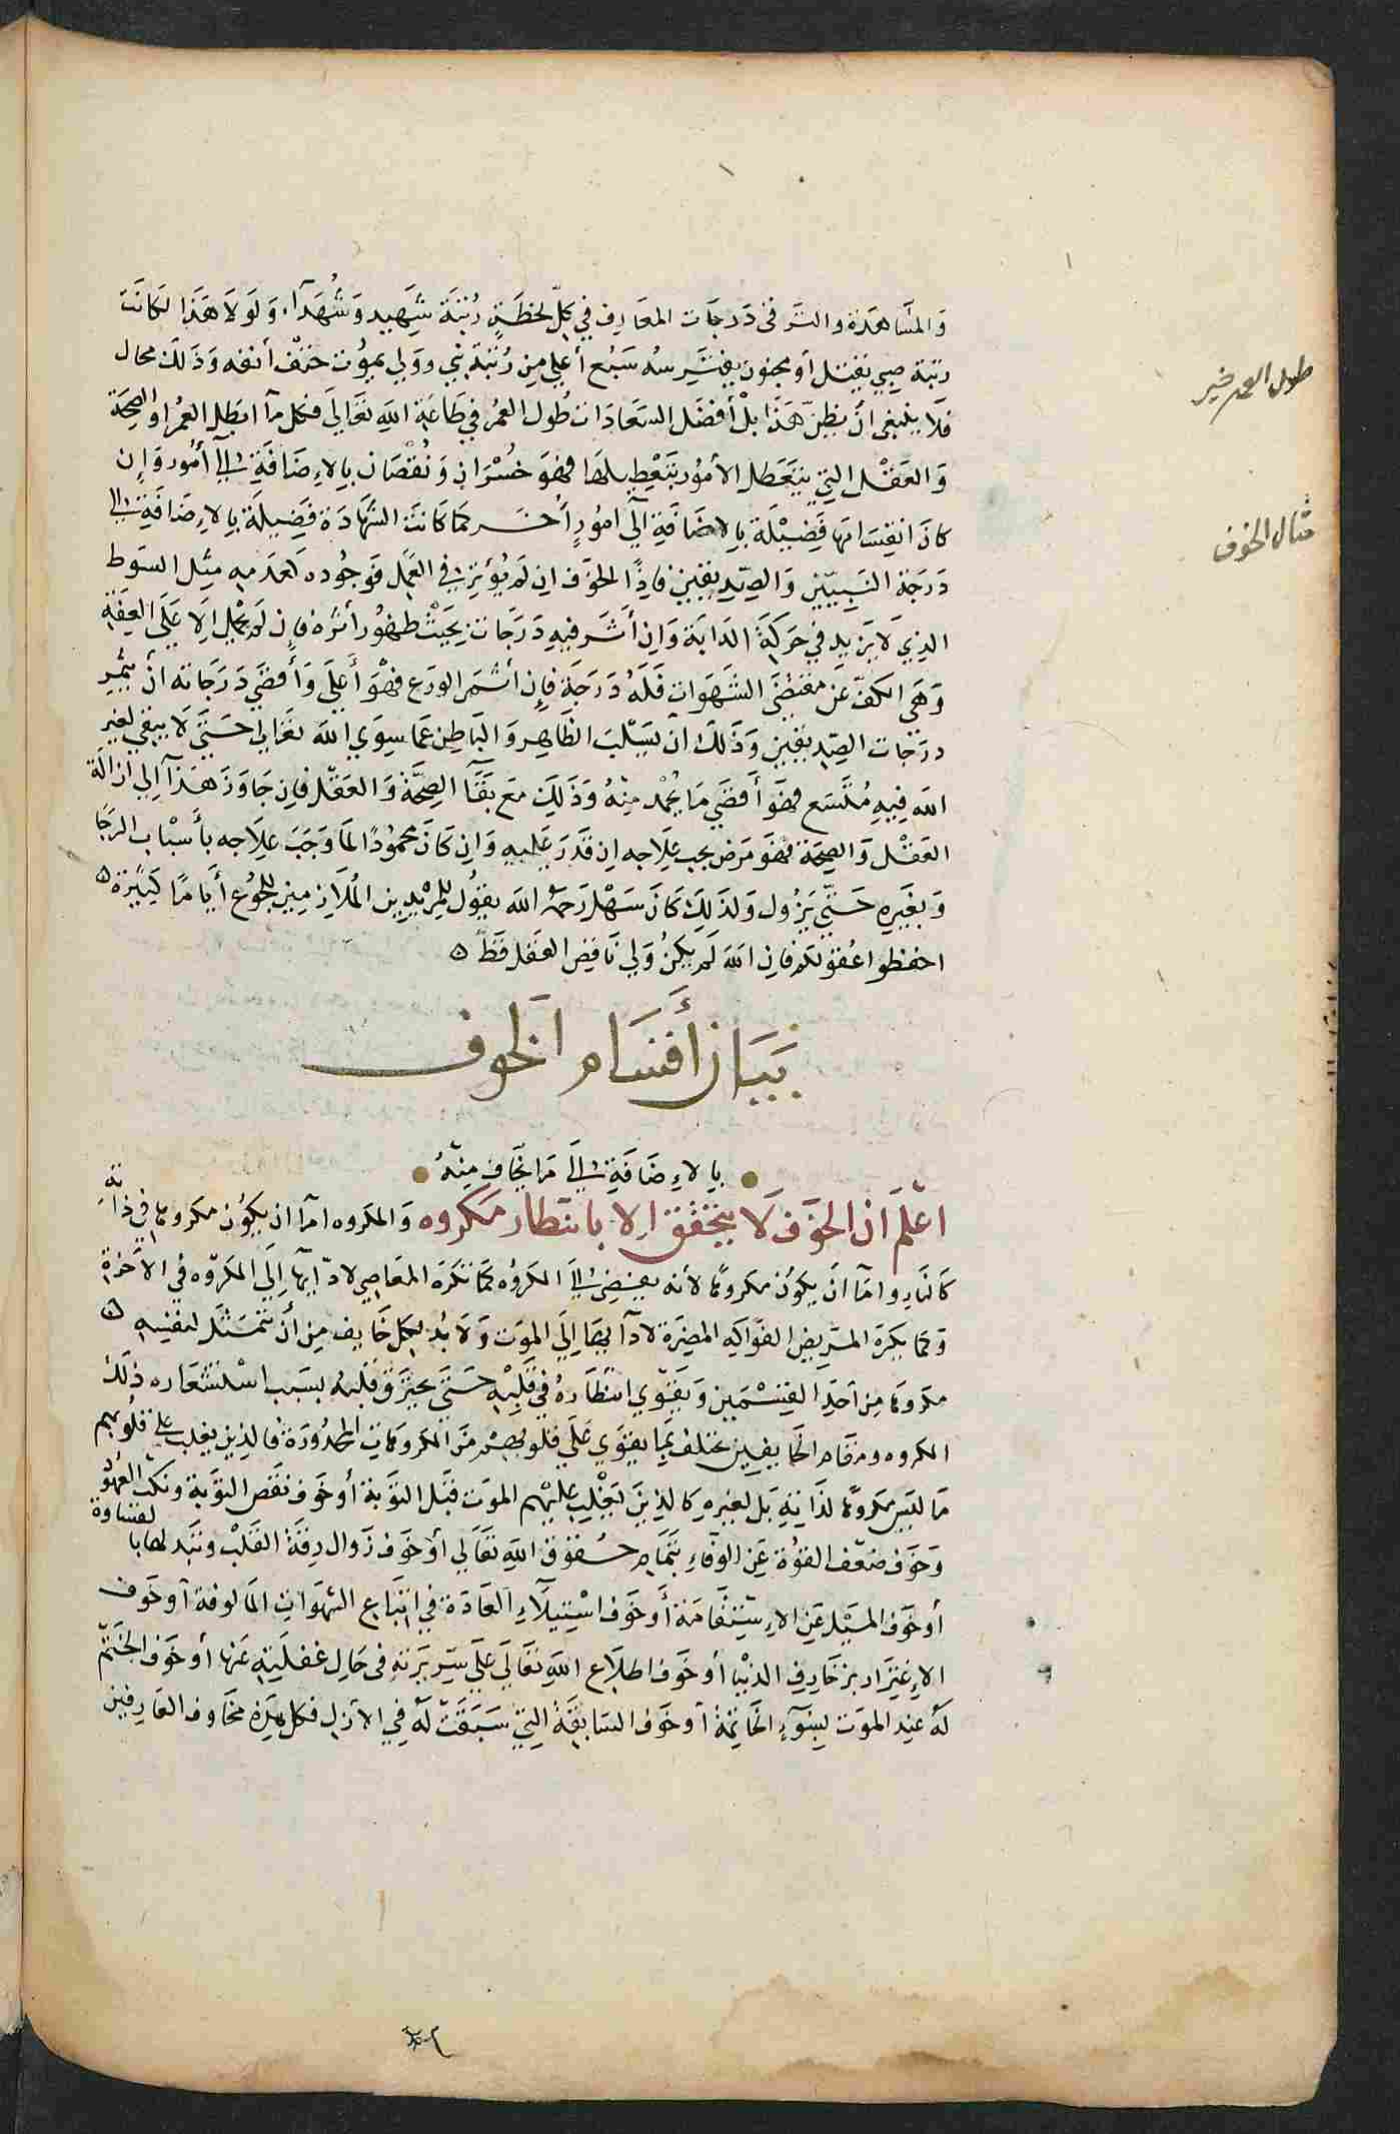 والمشاهدة والترقى في درجات المعارف في كل لحظة رتبة شهيد وشهدآء ولولا هذا لكانت
رتبة صبي يقتل أو مجنون يفترسه سبع أعلي من رتبة نبي وولي يموت حتف أنفه وذلك محال
فلا ينبغي ان يظن هذا بل أفضل السعادات طول العمر في طاعة الله تعالي فكل مآ ابطل العمر او الصحة
والعقل التي يتعطل الأمور بتعطيلها فهو خسران ونقصان بالإضافة إلي أمور وإن
كان اقسامها فضيلة بالاضافة الي امور أخر كما كانت الشهادة فضيلة بالإضافة إلي
درجة النبيين والصديقين فاذًا الخوف ان لم يؤثر في العمل فوجوده كعدمه مثل السوط
الذي لا يزيد في حركة الدابة وان أثر فيه درجات بحيث ظهور أثره فإن لم يحمل الا علي العفة
وهي الكف عن مقتضى الشهوات فله درجة فإن أثمر الورع فهو أعلي وأقصي درجاته أن يثمر
درجات الصديقين وذلك أن يسلب الظاهر والباطن عما سوي الله تعالي حتي لا يبقي لغير
الله فيه متسع فهو أقصي ما يحمد منه وذلك مع بقآ الصحة والعقل فإن جاوز هذآ الي ازالة
العقل والصحة فهو مرض يجب علاجه ان قدر عليه وان كان محمودًا لما وجب علاجه بأسباب الرجا
وبغيره حتي يزول ولذلك كان سهل رحمه الله يقول للمريدين الملازمين للجوع أيامًا كثيرة ه
احفظوا عقولكم فان الله لم يكن ولي ناقص العقل قط ه
بيان أقسام الخوف
بالإضافة إلي ما يخاف منه
اعلم ان الخوف لا يتحقق الا بانتظار مكروه والمكروه اما ان يكون مكروها في ذاته
كالنار واما ان يكون مكروهًا لأنه يفضي إلي المكروه كما تكره المعاصي لادآئها إلي المكروه في الاخرة
وكما يكره المريض الفواكه المضرة لادآئها إلي الموت ولا بد لكل خايف من أن يتمثل لنفسه ه
مكروها من أحد القسمين ويقوي انتظاره في قلبه حتي يحترق قلبه بسبب استشعاره ذلك
المكروه ومقام الخايفين يختلف بما يقوي علي قلوبهم من المكروهات المحذورة فالذين يغلب علي قلوبهم
ما ليس مكروهًا لذاته بل لغيره كالذين يغلب عليهم الموت قبل التوبة أو خوف نقض التوبة ونكث العهود
وخوف ضعف القوة عن الوفاء بتمام حقوق الله تعالي أو خوف زوال رقة القلب وتبدلها بالقساوة
أو خوف الميل عن الإستقامة أو خوف استيلآء العادة في اتباع الشهوات المالوفة او خوف
الإغترار بزخارف الدنيا أو خوف اطلاع الله تعالي علي سريرته في حال غفلته عنها أو خوف الختم
له عند الموت بسوء الخاتمة او خوف السابقة التي سبقت له في الأزل فكل هذه مخاوف العارفين
طول العمر خير
مثال الخوف